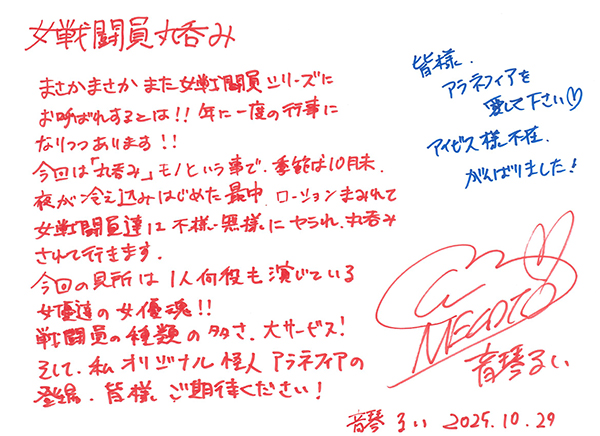 女戦闘員丸呑み
まさかまさか また女戦闘員シリーズに
お呼ばれするとは!! 年に一度の行事に
なりつつあります!!
今回は「丸呑み」モノという事で、季節は10月末、
夜が冷え込みはじめた最中、ローションまみれで
女戦闘員達は不様・無様にヤられ、丸呑み
されて行きます。
今回の見所は1人何役も演じている
女優達の女優魂!!
戦闘員の種類の多さ、大サービス!
そして、私オリジナル怪人アラネフィアの
登場。皆様、ご期待ください!
皆様、
アラネフィアを
愛して下さい♡
アイゼス様不在、
がんばりました!
MEGATO
音琴るい
音琴 るい 2025.10.29